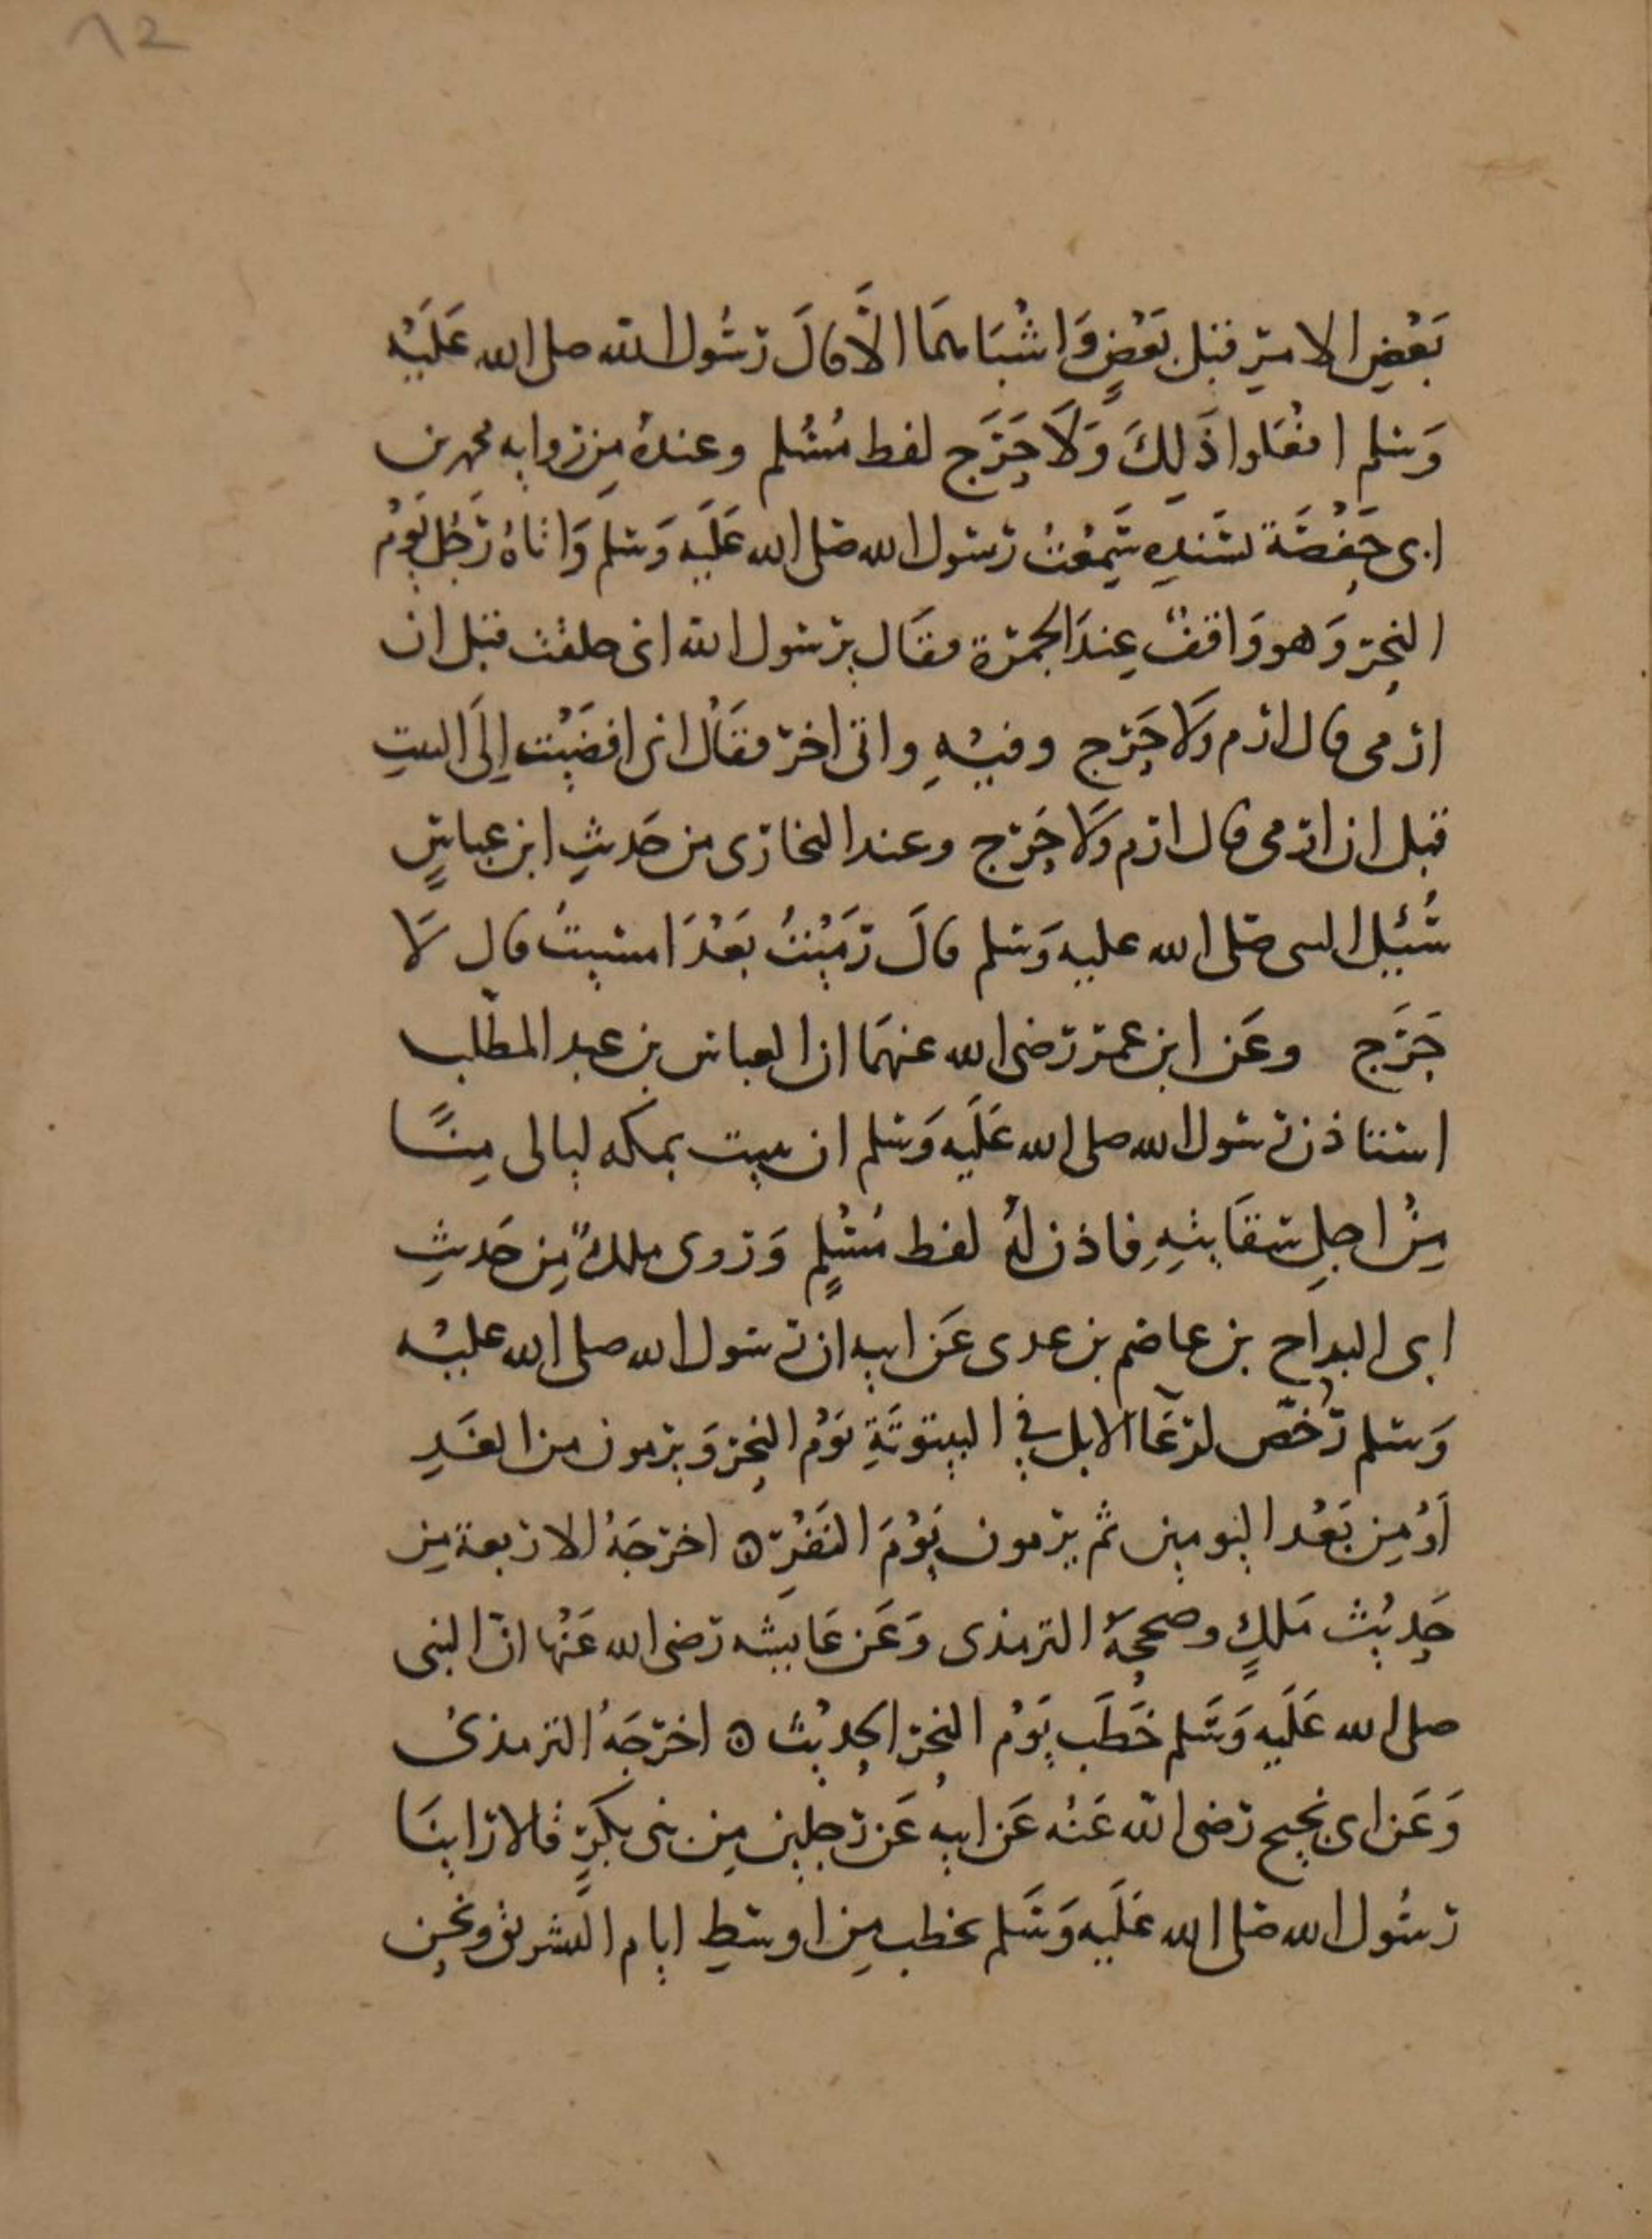 12
بَعْضِ الامرِ قبل بَعْضٍ وَاشْبَاهَهَا الَّا قالَ رسُول الله صلى الله عَلَيْه
وَسلم افعَلوا ذَلِكَ وَلَا حَرَج لفظ مُسْلم وعندهُ مِن روايه محمد بن
ابى حَفْصَة بسَنَدِه سَمِعْتُ رَسول الله صَلى الله عَلَيه وَسلم وَاتاهُ رَجُل يَوْم
النحرِ وَهو وَاقفٌ عِندَ الجمرَة فقَال يرسول الله انى حلقت قبل ان
ارمى قال ارم وَلَا حَرَج وفيْهِ واتى اخر فقَال انى افضَيْت إِلَى البيتِ
قبل ان ارمى قال ارم وَلَا حَرَج وعند البخارى من حَديثِ ابن عباسٍ
سُئِل النبى صَلى الله عليه وَسلم قالَ رَمَيْتُ بَعْدَ امسيتُ قال لَا
حَرَج وعَن ابن عمر رَضى الله عنهمَا ان العباس بن عبد المطّلب
استاذن رسول الله صلى الله عَلَيه وَسلم ان يبيت بمكه ليالى مِنًا
مِنْ اجلِ سقَايتِهِ فاذن لهُ لفظ مُسْلمٍ وَروى ملكٌ مِن حَديثِ
ابى البداح بن عاصم بن عدى عَن ابيه ان رسول الله صلى الله عليْه
وَسلم رُخّص لرِعَا الابل فِى البيتوتَةِ يَوْم النحِر وَيرمون من الغَدِ
أوْ مِن بَعْد اليومين ثم يرمون يَوْمَ النَفْرِ ۞ اخرجَهُ الاربعة مِن
حَدِيْث مَلكٍ وصححهُ الترمذى وَعَن عَايشه رَضى الله عَنْها انّ النبى
صلى الله عَلَيه وَسَّلم خَطَب يَوْم النحر الحديْث ۞ اخرجَهُ الترمذىُ
وَعَن ابى نجيح رَضى اللّه عَنْه عَن ابيه عَن رَجلين مِن بنى بَكرٍ قالا رَاينَا
رَسُول الله صَلى الله عَلَيه وَسَّلم يخطب مِن اوسَطِ ايام التشريق ونحن